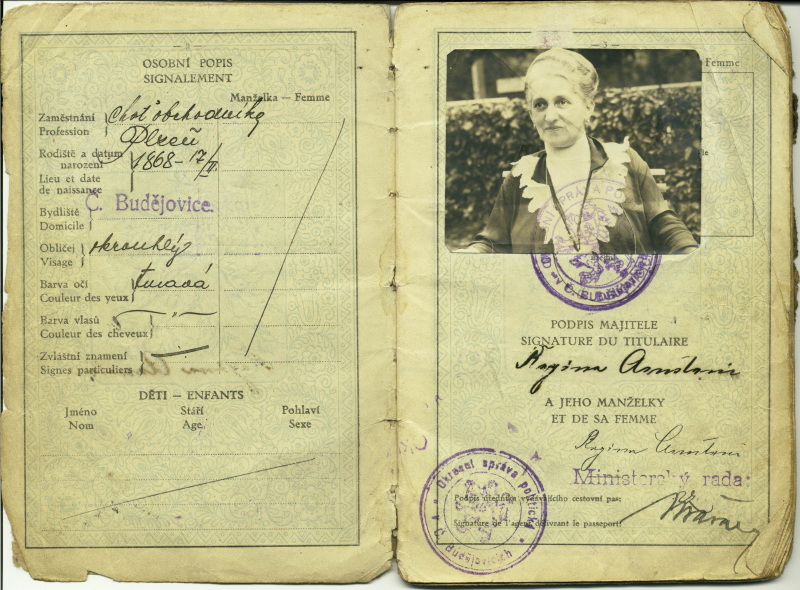 OSOBNÍ POPIS
SIGNALEMENT
Manželka — Femme
Zaměstnání
Profession
choť obchodníka
Plzeň
Rodiště a datum
narození
1868 - 17/II.
Lieu et date
de naissance
Č. Budějovice.
Bydliště
Domicile
Obličej
okrouhlý
Visage
Barva očí
tmavá
Couleur des yeux
Barva vlasů
— " —
Couleur des cheveux
Zvláštní znamení
Signes particuliers
DĚTI — ENFANTS
Jméno
Stáří
Pohlaví
Nom
Age.
Sexe
— 3 —
Femme
PODPIS MAJITELE
SIGNATURE DU TITULAIRE
Regina
A JEHO MANŽELKY
ET DE SA FEMME
Regina
Ministerský rada:
Podpis úředníka vydávajícího cestovní pas:
Signature de l'agent délivrant le passeport:
Okresní správa politická
Budějovicích